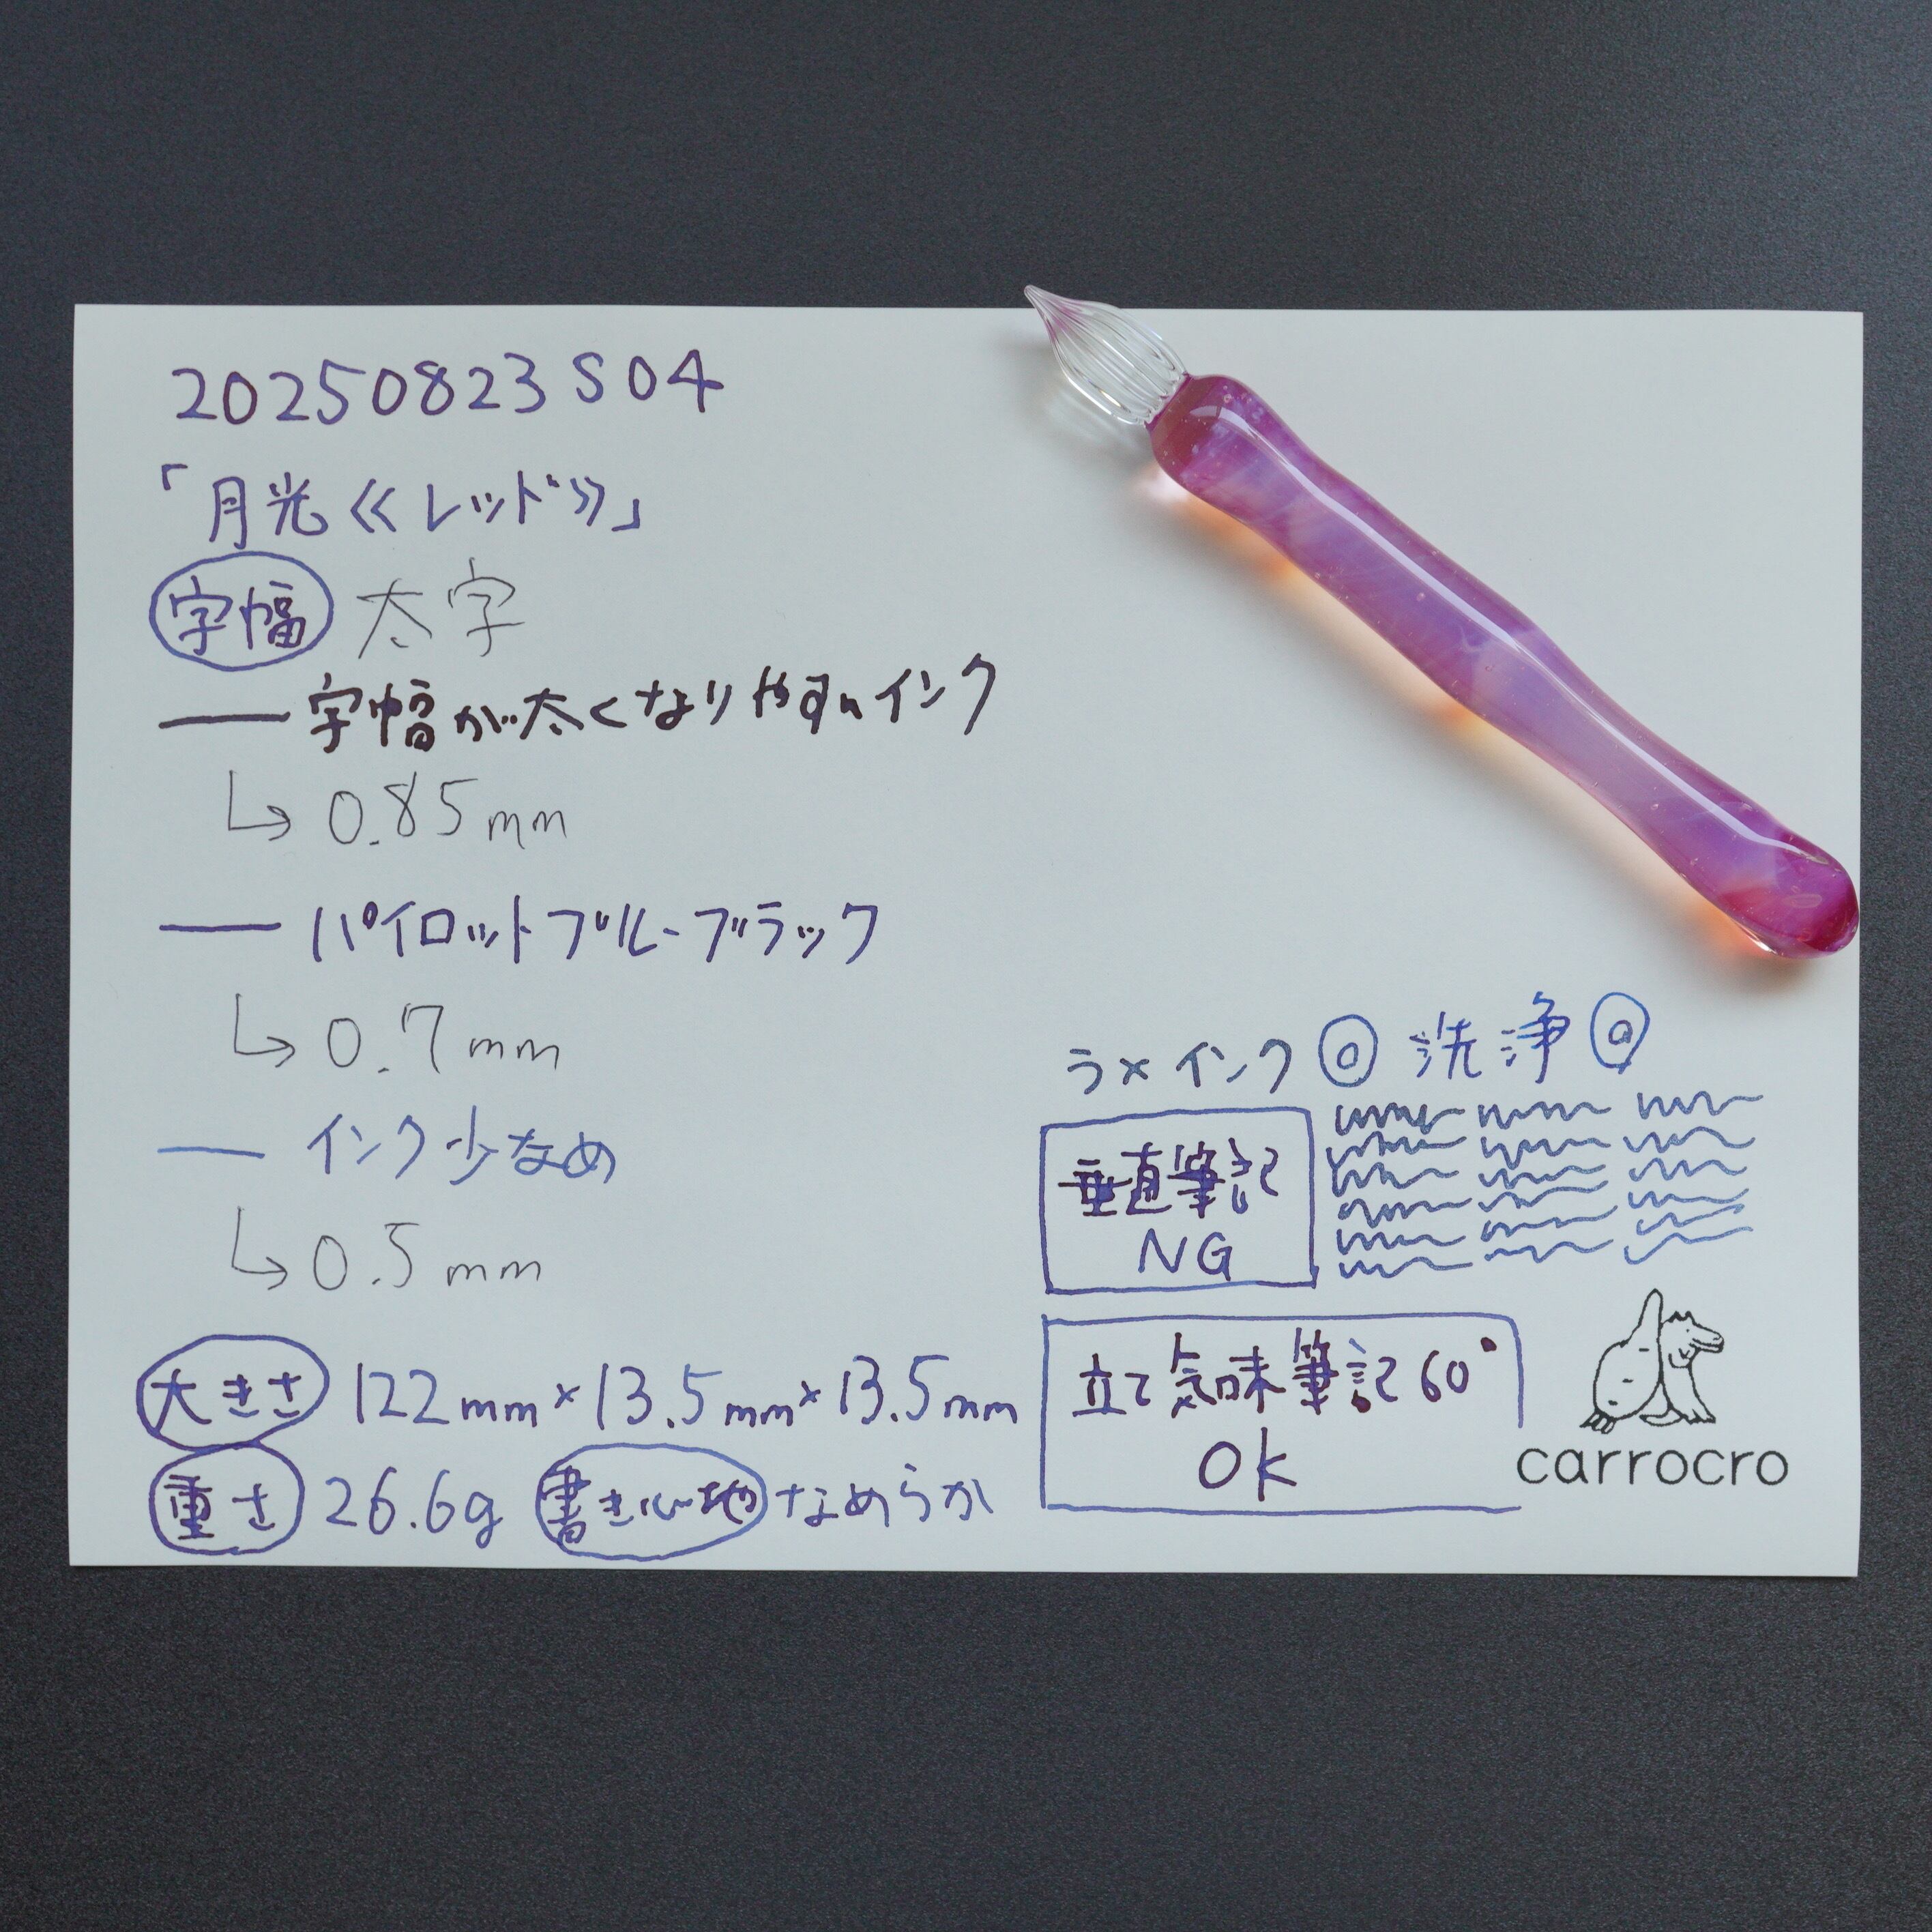 20250823S04
「月光《レッド》」
字幅 太字
字幅が太くなりやすいインク
↳0.85mm
パイロットブルーブラック
↳0.7mm
インク少なめ
↳0.5mm
大きさ 122mm×13.5mm×13.5mm
重さ 26.6g 書き心地 なめらか
ラメインク ◎ 洗浄 ◎
垂直筆記
NG
立て気味筆記60°
OK
carrocro